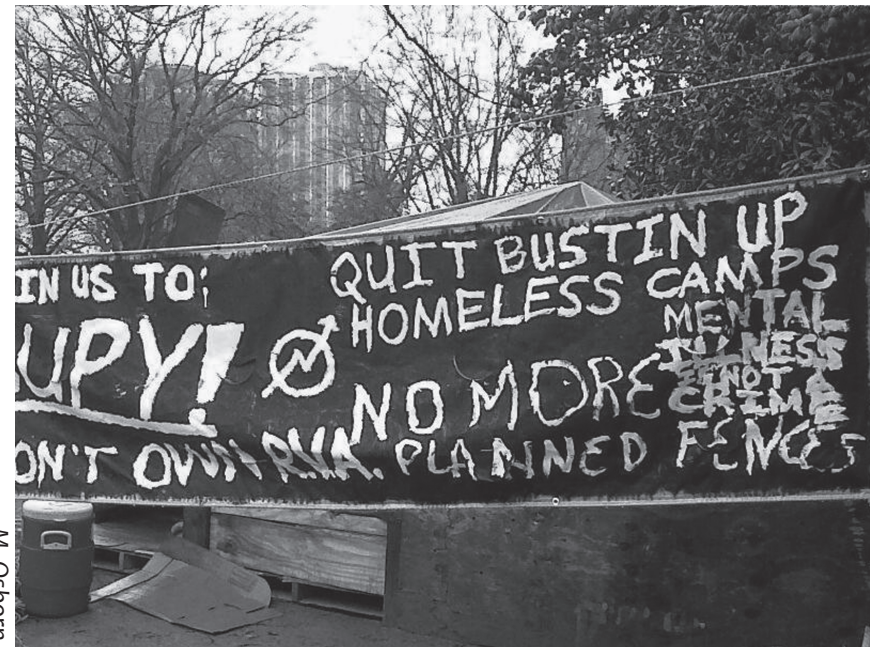 IN US TO:
UPY!
ON'T OWN RVA.
QUIT BUSTIN UP
HOMELESS CAMPS
MENTAL
ILLNESS
IS NOT A
CRIME
NO MORE
PLANNED FENCES
M. Osborn